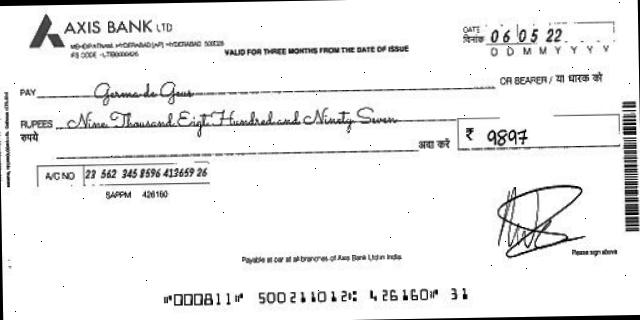 AXIS BANK LTD
MEHDIPATNAM, HYDERABAD [AP] HYDERABAD 500028
IFS CODE - UTIB0000426
VALID FOR THREE MONTHS FROM THE DATE OF ISSUE
DATE
दिनांक
06 05 22
D D M M Y Y Y Y
PAY Germa de Geus
OR BEARER / या धारक को
RUPEES Nine Thousand Eigt Hundred and Ninety Seven
रुपये
अदा करें ₹ 9897
A/C NO 23 562 345 8596 413659 26
SAPPM 426160
Please sign above
Payable at par at all branches of Axis Bank Ltd in India
⑈000811⑈ 500211012⑆ 426160⑈ 31